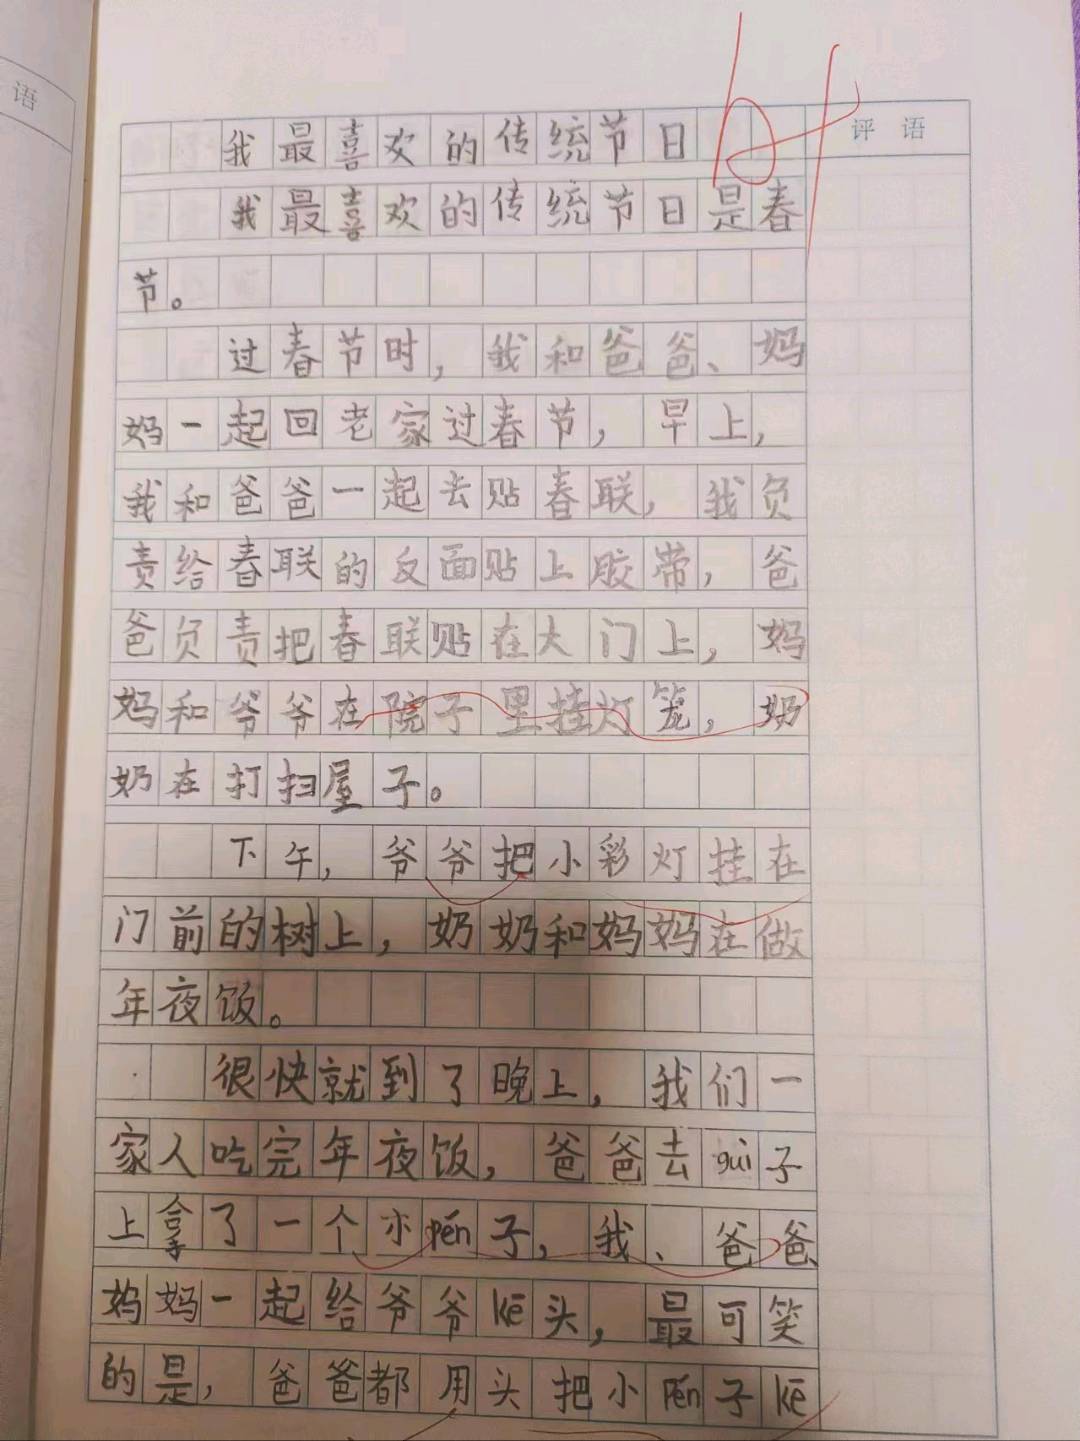 语
评语
我最喜欢的传统节日
我最喜欢的传统节日是春
节。
过春节时，我和爸爸、妈
妈一起回老家过春节，早上，
我和爸爸一起去贴春联，我负
责给春联的反面贴上胶带，爸
爸负责把春联贴在大门上，妈
妈和爷爷在院子里挂灯笼，奶
奶在打扫屋子。
下午，爷爷把小彩灯挂在
门前的树上，奶奶和妈妈在做
年夜饭。
很快就到了晚上，我们一
家人吃完年夜饭，爸爸去guì子
上拿了一个小pén子，我、爸爸、
妈妈一起给爷爷kē头，最可笑
的是，爸爸都用头把小pén子kē